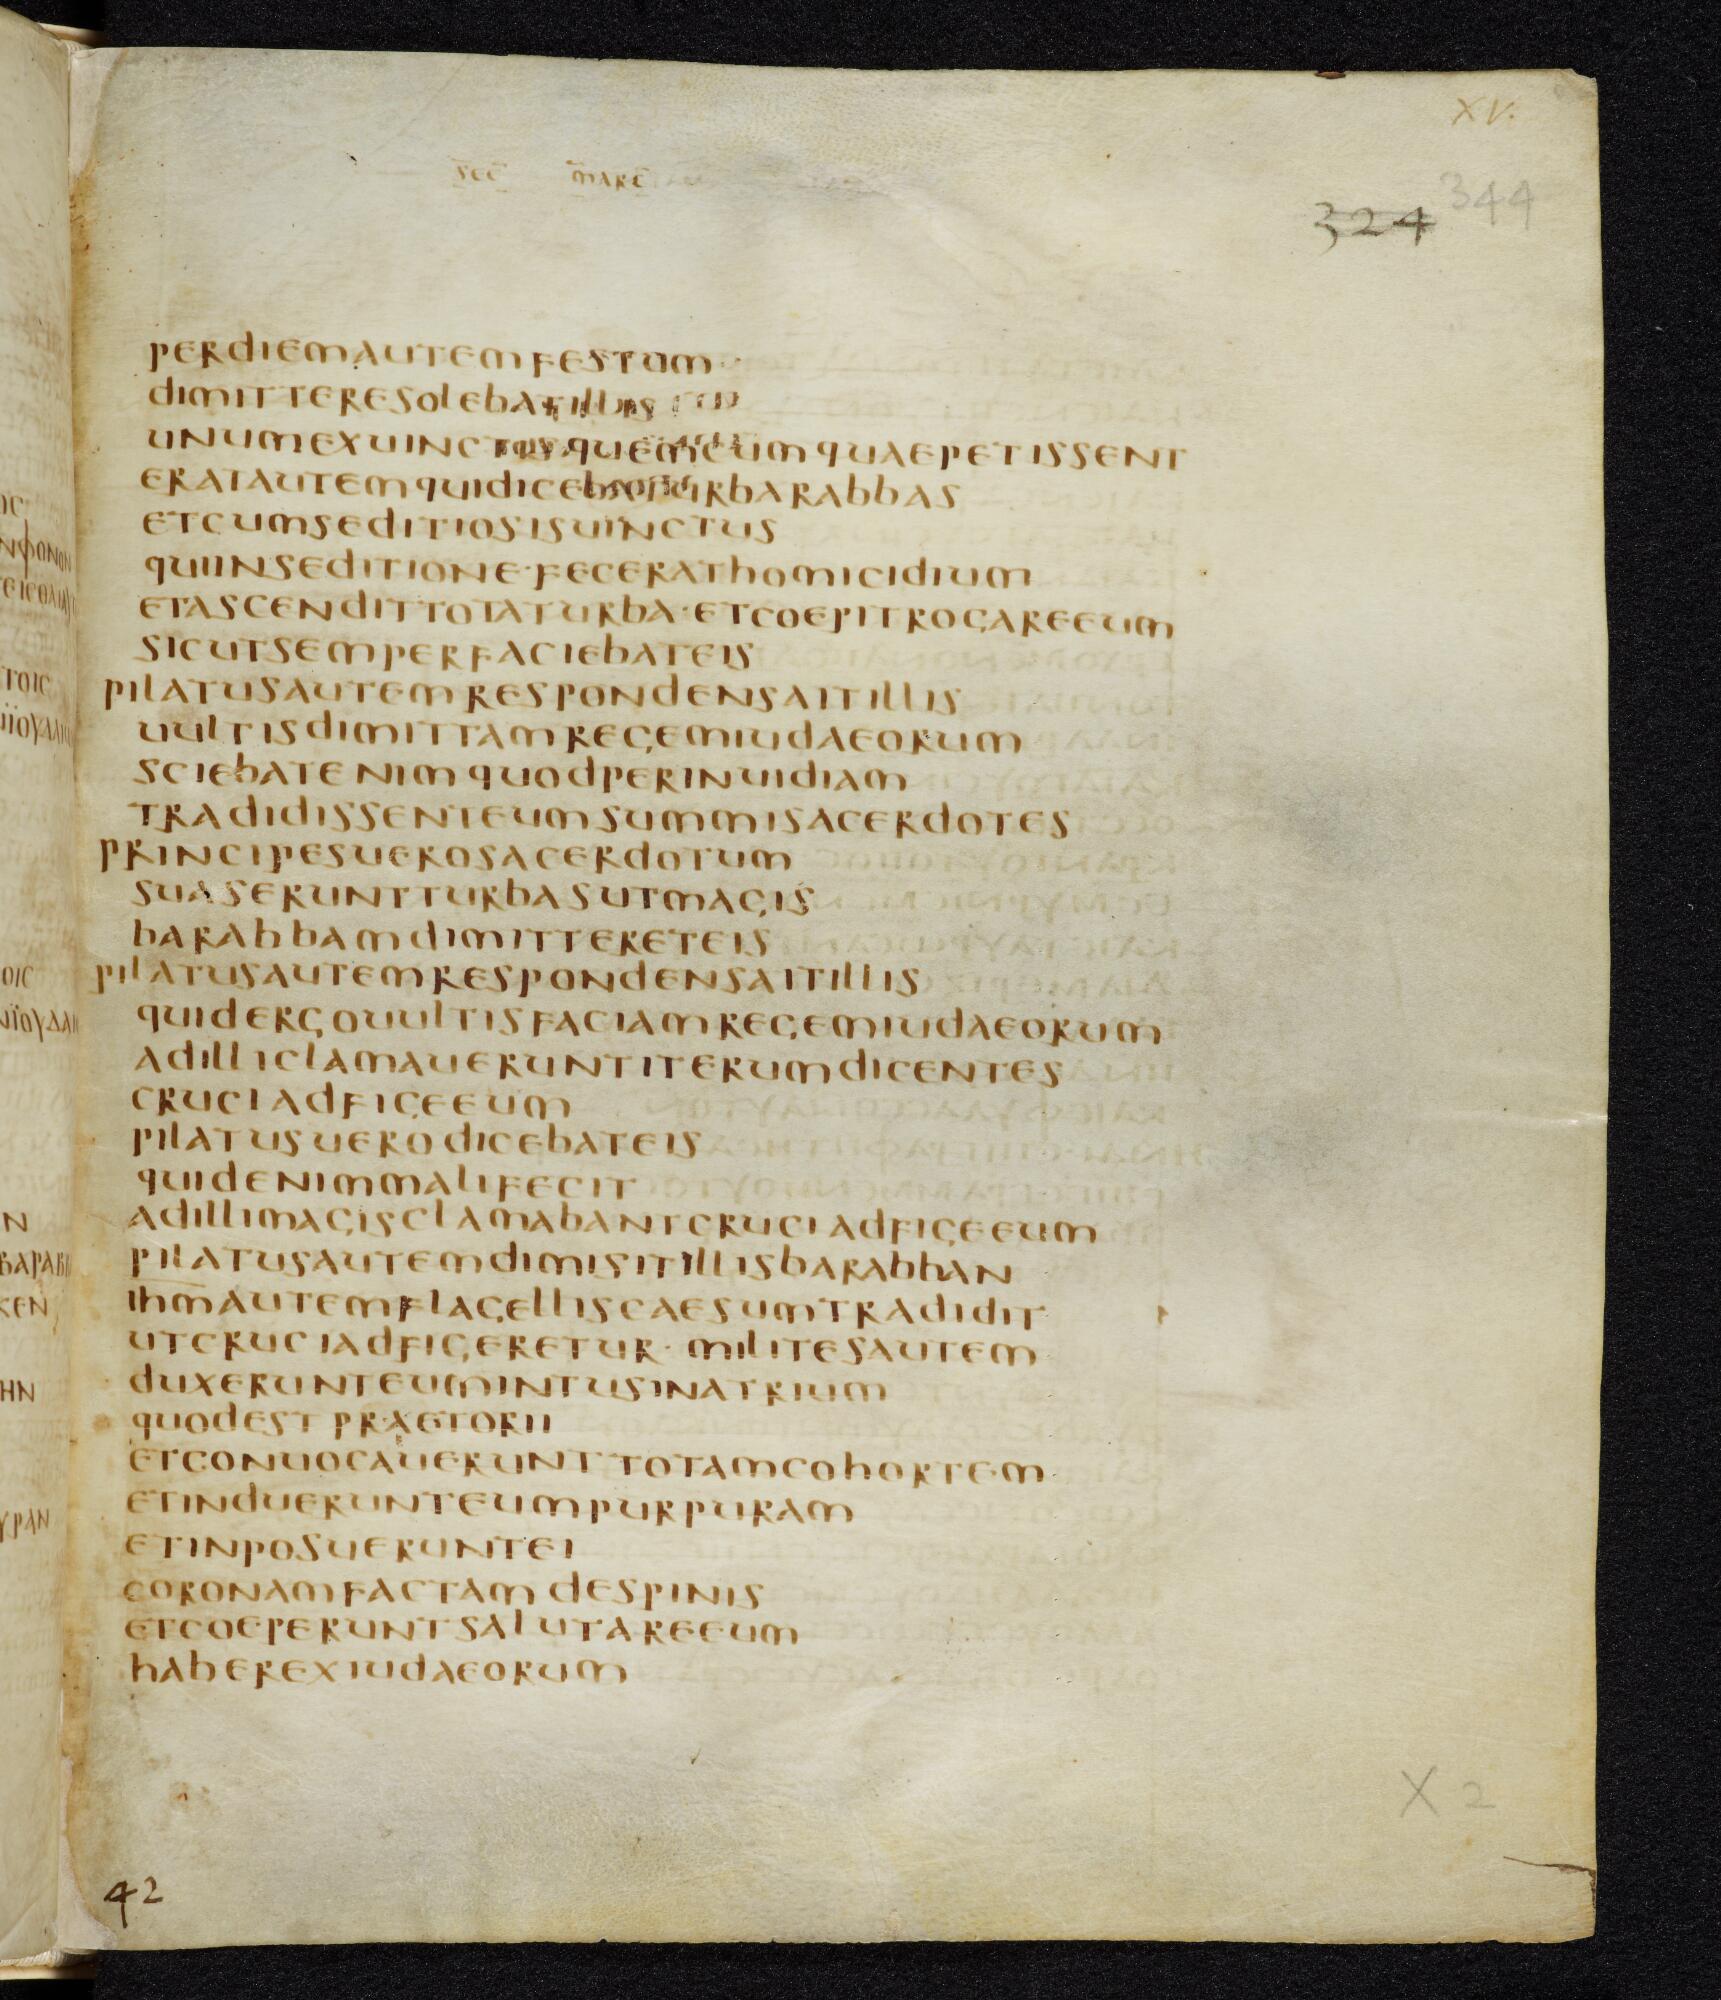 XV.
sec marc
344
324
perdiemautemfestum
dimitteresolebatillis
unumexuinctis quemcumquaepetissent
eratautemquidicebaturbarabbas
etcumseditiosisuinctus
quiinseditione·fecerathomicidium
etascendittotaturba·etcoepitrogareeum
sicutsemperfaciebateis
pilatusautemrespondensaitillis
uultisdimittamregemiudaeorum
sciebatenimquodperinuidiam
tradidissenteumsummisacerdotes
principesuerosacerdotum
suaseruntturbasutmagis
barabbamdimittereteis
pilatusautemrespondensaitillis
quidergouultisfaciamregemiudaeorum
adilliclamaueruntiterumdicentes
cruciadfigeeum
pilatusuerodicebateis
quidenimmalifecit
adillimagisclamabantcruciadfigeeum
pilatusautemdimisitillisbarabban
ihmautemflagelliscaesumtradidit
utcruciadfigeretur· militesautem
duxerunteumintusinatrium
quodest praetorii
etconuocauerunt totamcohortem
etinduerunteumpurpuram
etinposueruntei
coronamfactam despinis
etcoeperuntsalutareeum
haberexiudaeorum
X 2
42